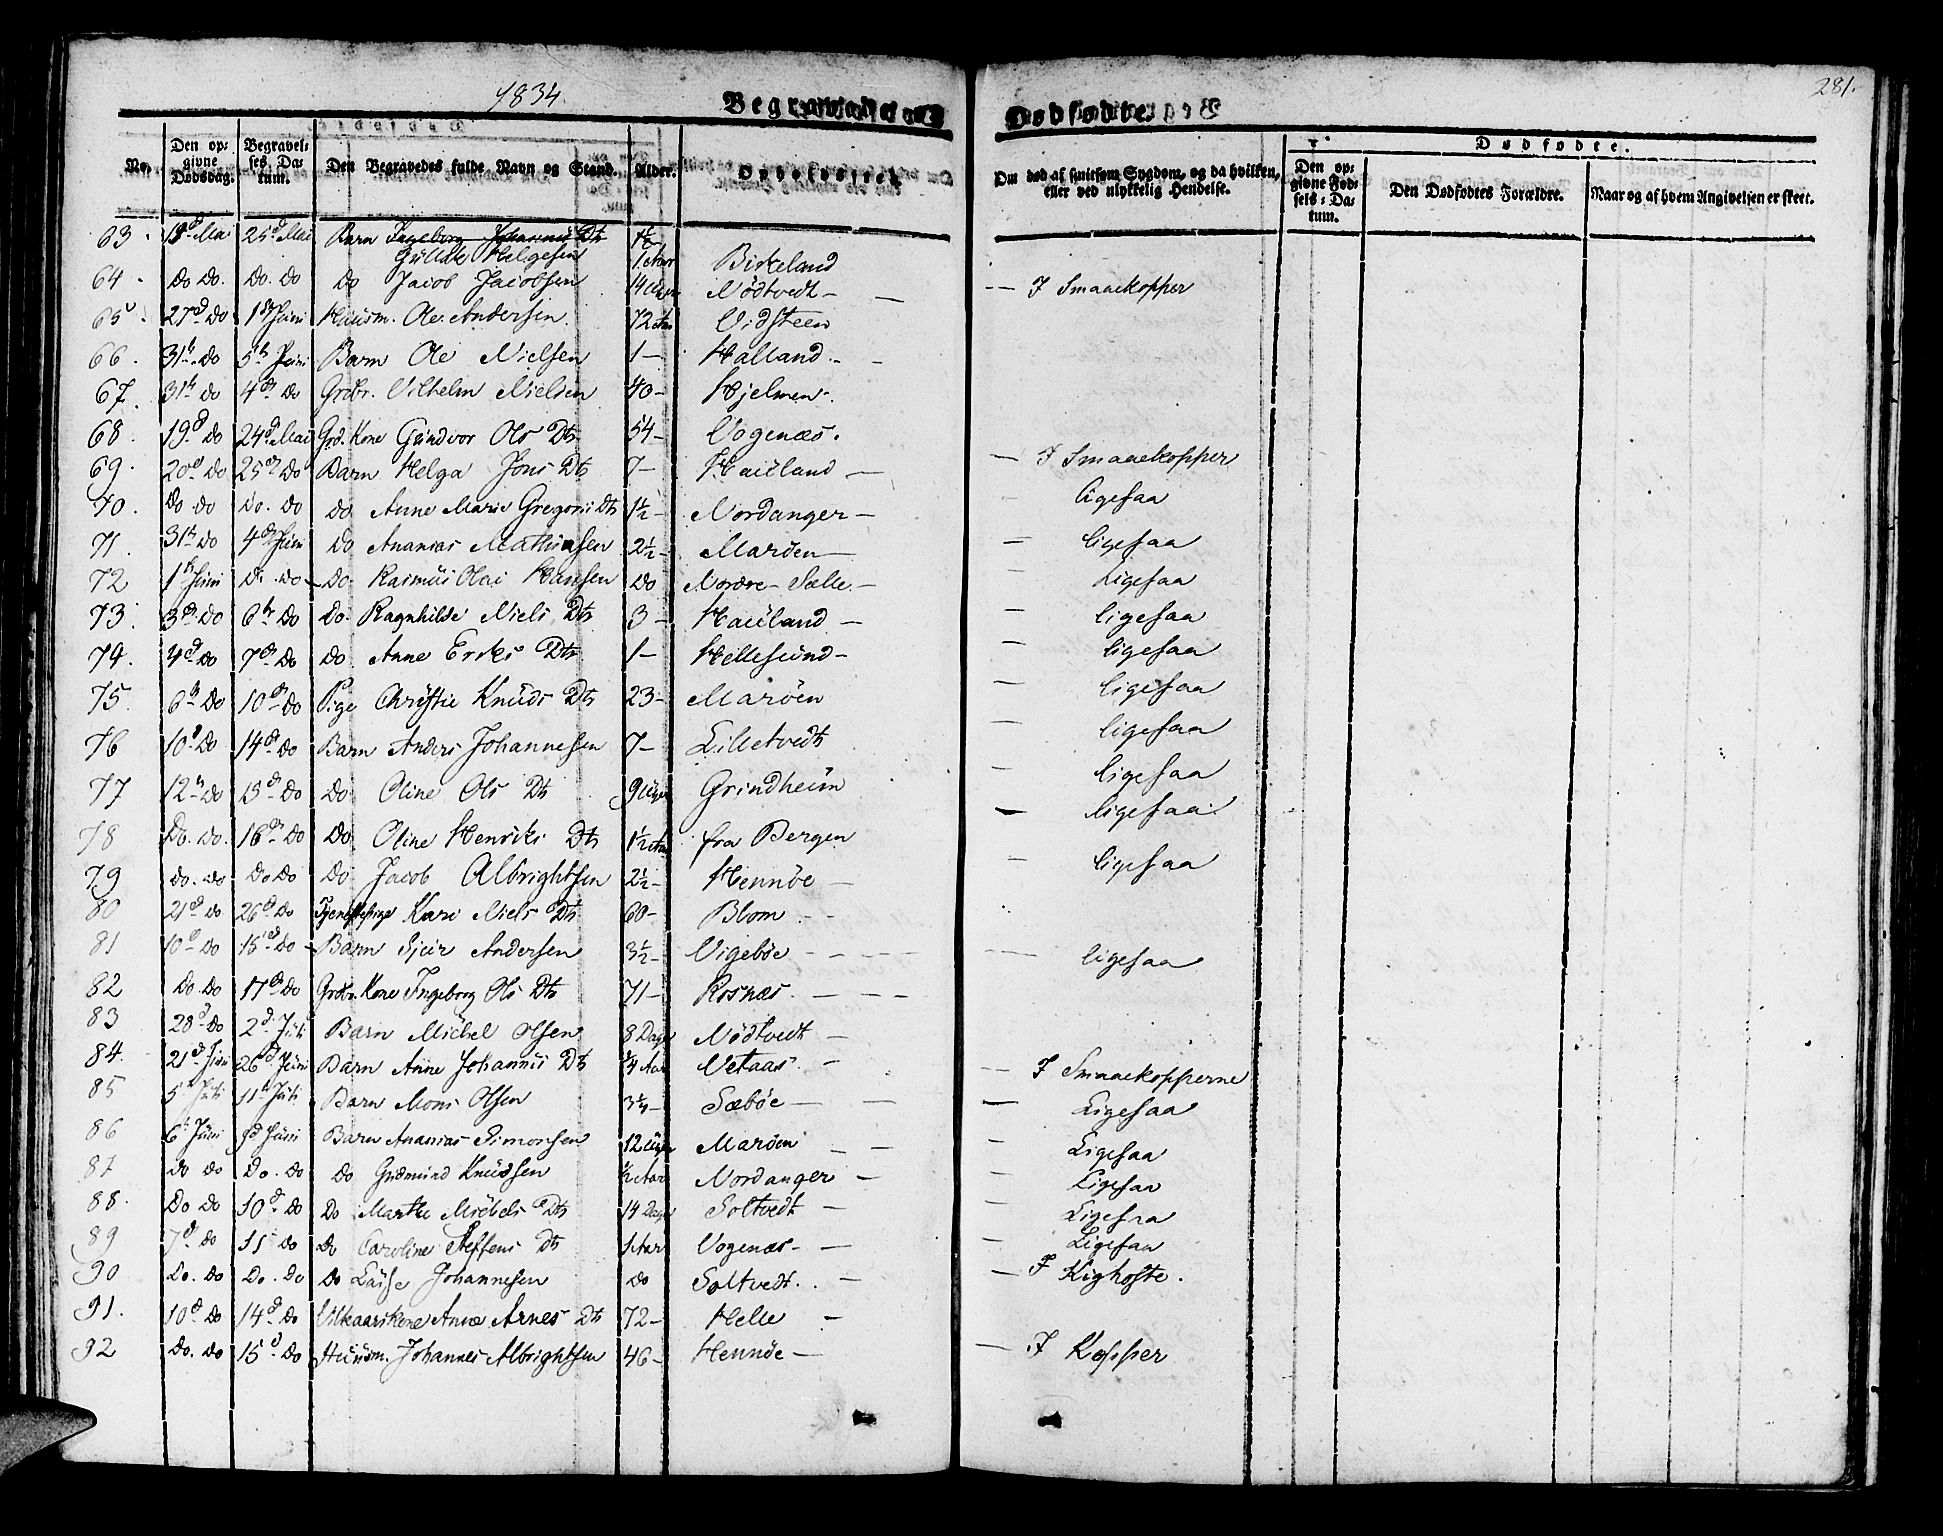 1834.
Begravede og
Dødfødte.
281.
No.
Den opgivne Dødsdag.
Begravelses Datum.
Den Begravedes fulde Navn og Stand.
Alder.
Opholdssted
Om død af smitsom Sygdom, og da hvilken, eller ved ulykkelig Hendelse.
Dødfødte.
Den opgivne Fødsels-Datum.
Den Dødfødtes Forældre.
Naar og af hvem Angivelsen er skeet.
63. 19d Mai 25d Mai Barn Ingeborg Johannis Dtr 1½
Gullak Helgesen 1 Aar Birkeland
64. do do. do. do do Jacob Jacobsen 14 Uger Nödtvedt — — J Smaaekopper
65. 27d do 1st Juni Huusm. Ole Andersen. 72 Aar Vidsteen
66. 31t do 5th Juni Barn Ole Nielsen 1— Halland. —
67. 31t do 4de do Grdbr. Vilhelm Nielsen 40— Hjelmen.
68. 19d do 24d Mai Grd. Kone Gundvor Ols Dtr 54— Vogenæs.
69. 20d do 25d do Barn Helga Jons Dtr 7— Hauland — — J Smaaekopper
70. do do do. do do Anne Marie Gregorii Dtr 1½— Nordanger — — ligesaa
71. 31t do 4de Juni do Ananias Mathiasen 2½— Maröen — — ligesaa
72 1t Juni do. do— do. Rasmus Olai Hansen do Nordre-Sælle. — — Ligesaa
73. 3de do 6te do do. Ragnhilde Niels Dtr 3— Hauland — — ligesaa
74. 4de do 7de do do Anne Eriks Dtr 1— Hellesund — — ligesaa
75. 6te do 10de do Pige Christie Knuds Dtr 23— Maröen — ligesaa
76 10d do 14de do Barn Anders Johannesen 7— Lilletvedt — ligesaa
77 12te do 15d do do Oline Ols Dtr 9 Uger Grindheim — ligesaa
78 do. do. 16de do do Oline Henriks Dtr 1½ Aar fra Bergen — ligesaa.
79 do. do do do do Jacob Albrightsen 2½— Hennöe — — ligesaa
80 21d do 26d do Tjenestepige Kari Niels Dtr 60— Blom
81 10d do 15d do— Barn Sjur Andersen 3½— Vigeböe — — ligesaa
82 do. do 17de do Grdbr. Kone Ingeborg Ols Dtr 71— Rosnæs. — —
83 28d do 2d Juli Barn Michel Olsen 8 Dage Nödtvedt —
84. 21d Juni 26d Juni Barn Anne Johannis Dtr ¼ Aar Vetaas. — — J Smaaekopperne
85 5t Juli 11t Juli Barn Mons Olsen 3¼— Sæböe — — — Ligesaa
86 6t Juni 9d Juni Barn Ananias Simonsen 12 Uger Maröen — — — Ligesaa
87 do do do. do do Gudmund Knudsen ½ Aar Nordanger — — Ligesaa
88. do do 10d do do Marthe Michels Dtr 14 Dage Soltvedt — — Ligesaa
89 7d do 11 do do Caroline Steffens Dtr 1 Aar Vogenæs — — Ligesaa
90 do. do do. do do Lasse Johannesen do Soltvedt. — — J Kighoste.
91. 10d do 14d do Vilkaarskone Anne Arnes Dtr 72— Helle —
92 do. do 15d do Huusm. Johannes Albrightsen 46— Hennöe — — J Kopper